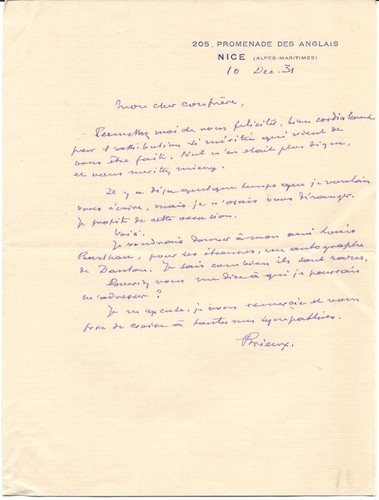 205, PROMENADE DES ANGLAIS
NICE (ALPES-MARITIMES)
10 Dec. 31
Mon cher confrère,
Permettez moi de vous féliciter, bien cordialement
pour l'attribution si méritée qui vient de
vous être faite. Nul n'en était plus digne,
et vous méritez mieux.
Il y a déjà quelque temps que je voulais
vous écrire, mais je n'osais vous déranger.
Je profite de cette occasion.
Voilà.
Je voudrais donner à mon ami Louis
pour ses étrennes, un autographe
de Danton. Je sais combien ils sont rares.
Pourriez vous me dire à qui je pourrais
m'adresser ?
Je m'excuse, je vous remercie et vous
prie de croire à toutes mes sympathies.
Brieux.